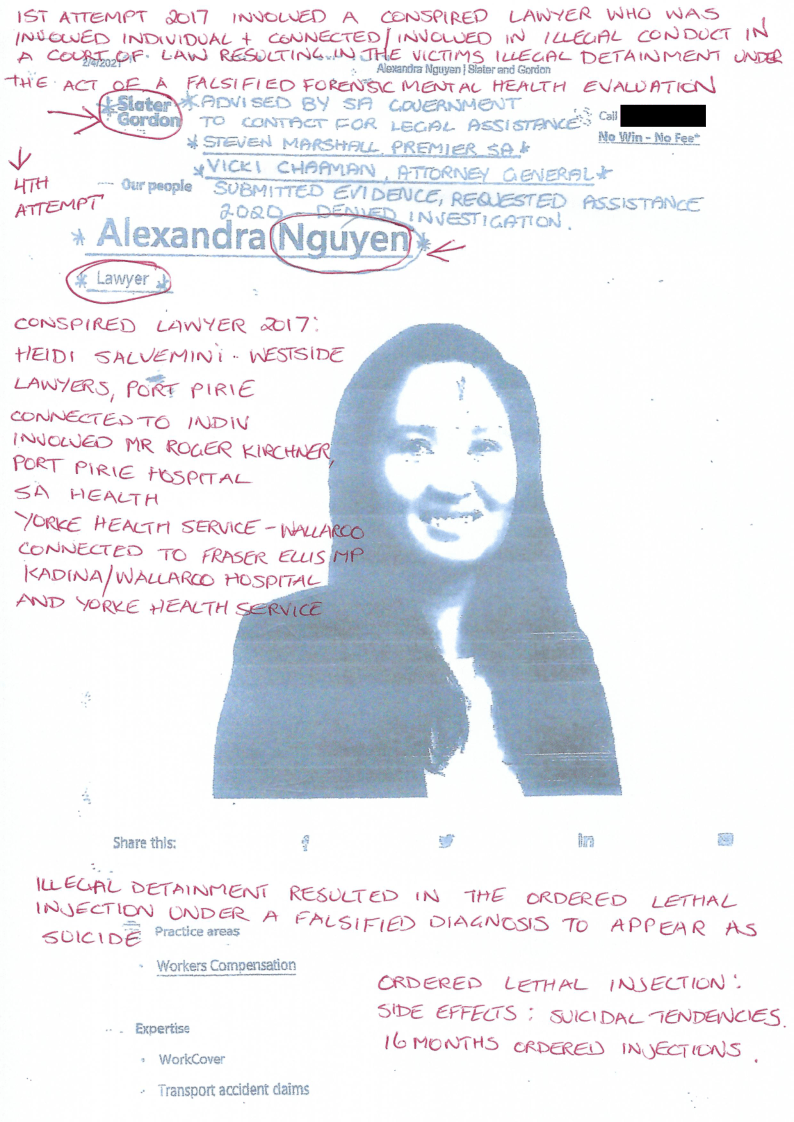 1ST ATTEMPT 2017 INVOLVED A CONSPIRED LAWYER WHO WAS
INVOLVED INDIVIDUAL + CONNECTED/INVOLVED IN ILLEGAL CONDUCT IN
A COURT OF LAW RESULTING IN THE VICTIMS ILLEGAL DETAINMENT UNDER
2/4/2021
Alexandra Nguyen | Slater and Gordon
THE ACT OF A FALSIFIED FORENSIC MENTAL HEALTH EVALUATION
* Slater
Gordon
* ADVISED BY SA GOVERNMENT
TO CONTACT FOR LEGAL ASSISTANCE
Call
No Win - No Fee*
* STEVEN MARSHALL, PREMIER SA *
* VICKI CHAPMAN, ATTORNEY GENERAL *
4TH
ATTEMPT
Our people
SUBMITTED EVIDENCE, REQUESTED ASSISTANCE
2020 - DENIED INVESTIGATION.
* Alexandra Nguyen *
* Lawyer *
CONSPIRED LAWYER 2017:
HEIDI SALVEMINI - WESTSIDE
LAWYERS, PORT PIRIE
CONNECTED TO INDIV
INVOLVED MR ROGER KIRCHNER,
PORT PIRIE HOSPITAL
SA HEALTH
YORKE HEALTH SERVICE - WALLAROO
CONNECTED TO FRASER ELLIS MP
KADINA/WALLAROO HOSPITAL
AND YORKE HEALTH SERVICE
Share this:
ILLEGAL DETAINMENT RESULTED IN THE ORDERED LETHAL
INJECTION UNDER A FALSIFIED DIAGNOSIS TO APPEAR AS
SUICIDE
Practice areas
Workers Compensation
ORDERED LETHAL INJECTION:
SIDE EFFECTS: SUICIDAL TENDENCIES.
16 MONTHS ORDERED INJECTIONS.
Expertise
WorkCover
Transport accident claims